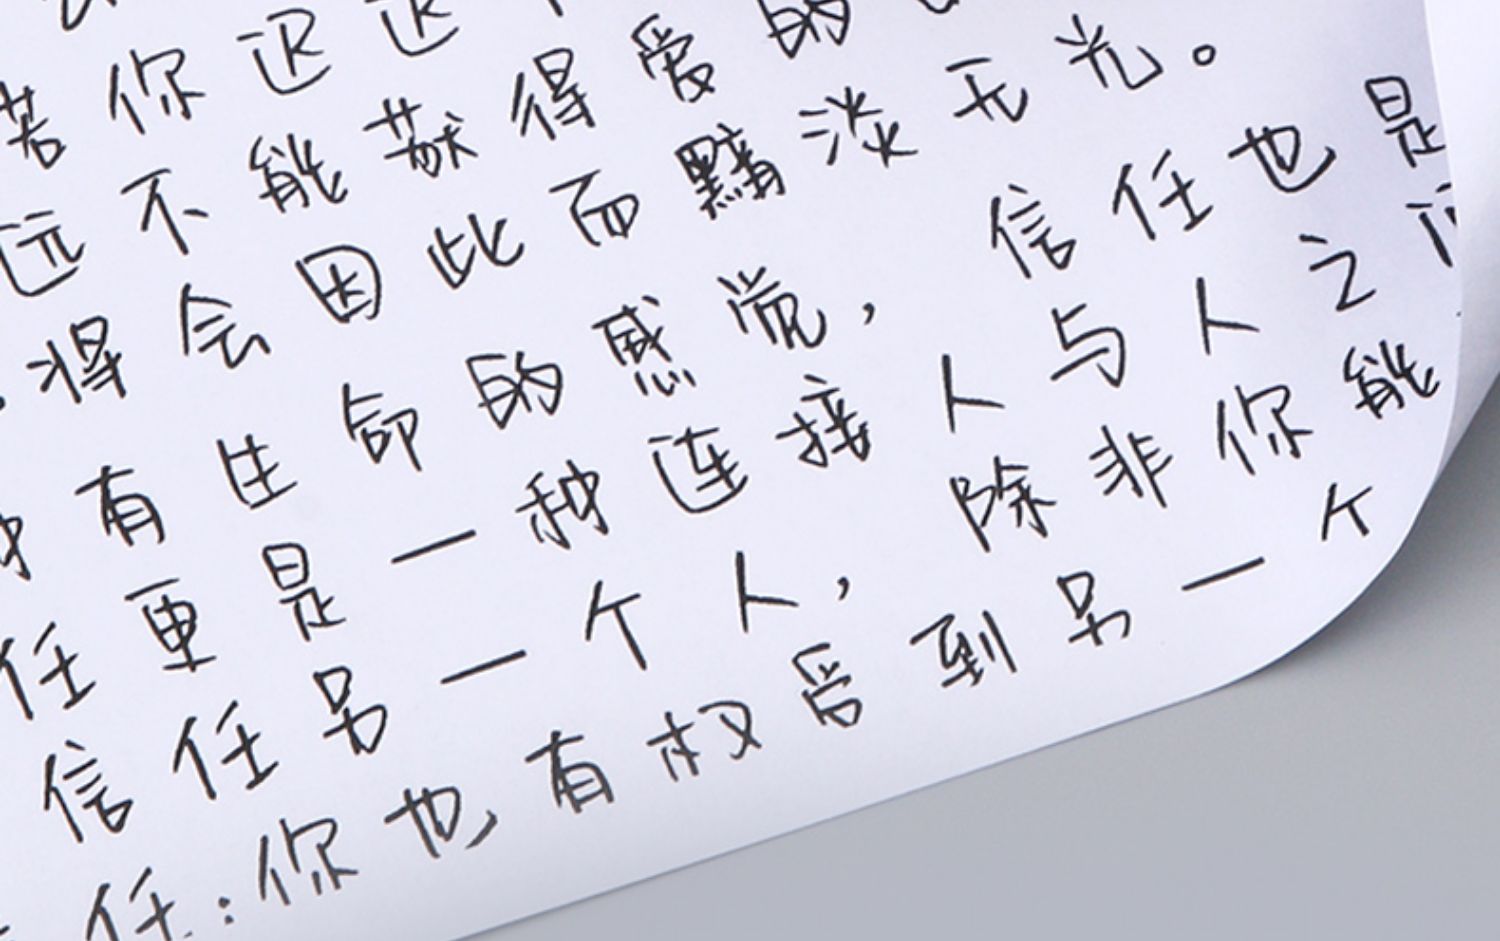 若你迟迟
远不能获得爱的
将会因此而黯淡无光。
种有生命的感觉，信任也是
任更是一种连接人与人之
信任另一个人，除非你能
任：你也有权受到另一个